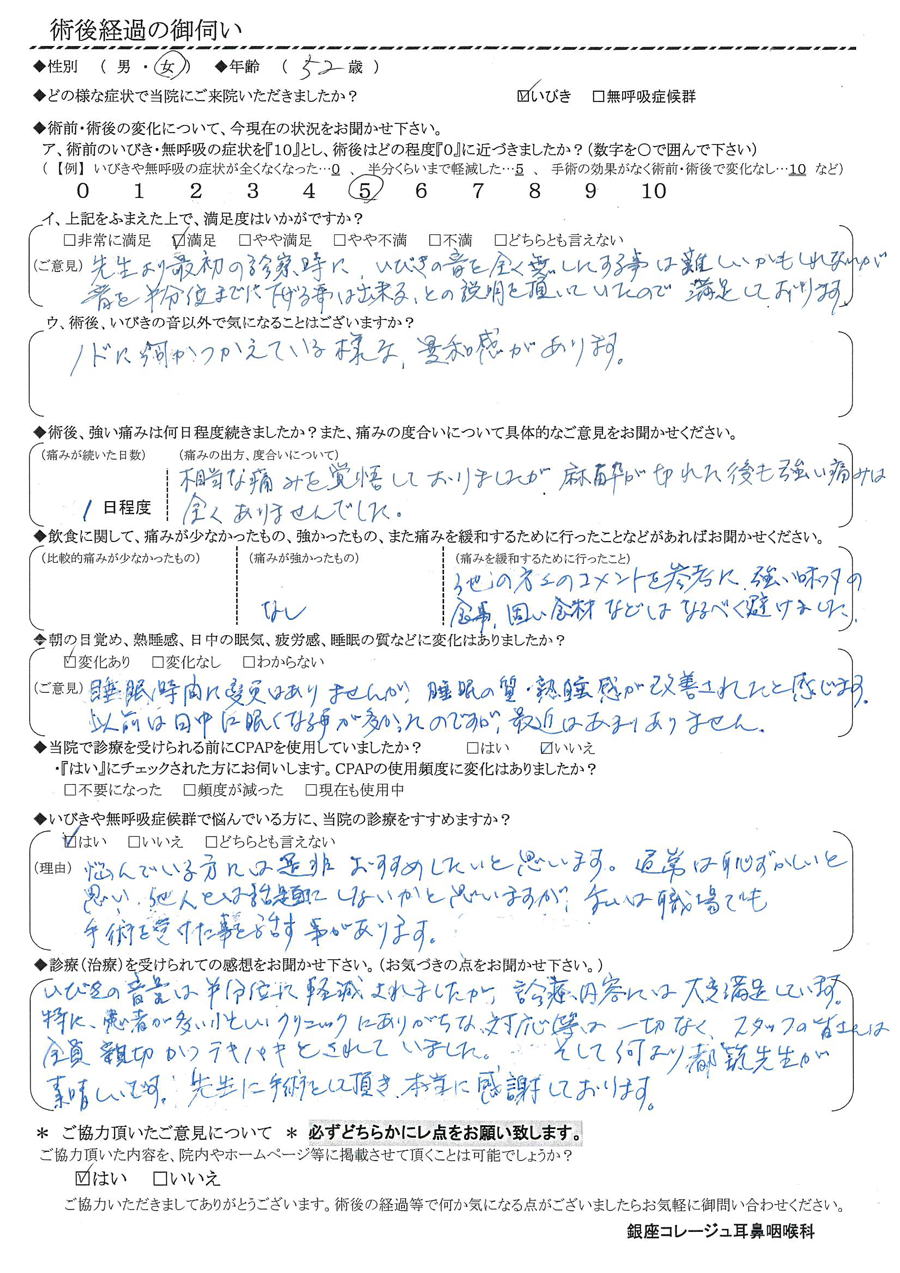 術後経過の御伺い
◆性別　( 男 ・ 女 )　◆年齢　( 52 歳 )
◆どの様な症状で当院にご来院いただきましたか?　☑いびき　□無呼吸症候群
◆術前・術後の変化について、今現在の状況をお聞かせ下さい。
ア、術前のいびき・無呼吸の症状を『10』とし、術後はどの程度『0』に近づきましたか?(数字を〇で囲んで下さい)
(【例】 いびきや無呼吸の症状が全くなくなった…0 、 半分くらいまで軽減した…5 、 手術の効果がなく術前・術後で変化なし…10 など)
0 1 2 3 4 5 6 7 8 9 10
イ、上記をふまえた上で、満足度はいかがですか?
□非常に満足　☑満足　□やや満足　□やや不満　□不満　□どちらとも言えない
(ご意見) 先生より最初の診察時に、いびきの音を全く無しにする事は難しいかもしれないが
音を半分位までに下げる事は出来る、との説明を頂いていたので 満足しております。
ウ、術後、いびきの音以外で気になることはございますか?
ノドに何かつかえている様な、違和感があります。
◆術後、強い痛みは何日程度続きましたか?また、痛みの度合いについて具体的なご意見をお聞かせください。
(痛みが続いた日数)　(痛みの出方、度合いについて)
相当な痛みを覚悟しておりましたが 麻酔が切れた後も強い痛みは
1 日程度　全くありませんでした。
◆飲食に関して、痛みが少なかったもの、強かったもの、また痛みを緩和するために行ったことなどがあればお聞かせください。
(比較的痛みが少なかったもの)　(痛みが強かったもの)　(痛みを緩和するために行ったこと)
他の方々のコメントを参考に、強い味つけの
なし　食事、固い食材などはなるべく避けました。
◆朝の目覚め、熟睡感、日中の眠気、疲労感、睡眠の質などに変化はありましたか?
☑変化あり　□変化なし　□わからない
(ご意見) 睡眠時間に変更はありませんが、睡眠の質・熟睡感が改善されたと感じます。
以前は日中に眠くなる事が多かったのですが、最近はあまりありません。
◆当院で診療を受けられる前にCPAPを使用していましたか?　□はい　☑いいえ
・『はい』にチェックされた方にお伺いします。CPAPの使用頻度に変化はありましたか?
□不要になった　□頻度が減った　□現在も使用中
◆いびきや無呼吸症候群で悩んでいる方に、当院の診療をすすめますか?
☑はい　□いいえ　□どちらとも言えない
(理由) 悩んでいる方には是非おすすめしたいと思います。通常は恥ずかしいと
思い、他人とは話題にしないかと思いますが、私は職場でも
手術を受けた事を話す事があります。
◆診療(治療)を受けられての感想をお聞かせ下さい。(お気づきの点をお聞かせ下さい。)
いびきの音量は半分位に軽減されましたが、診療内容には大変満足しています。
特に、患者が多い忙しいクリニックにありがちな対応等は一切なく、スタッフの皆さんは
全員親切かつテキパキとされていました。 そして何より都筑先生が
素晴しいです。先生に手術をして頂き、本当に感謝しております。
＊ ご協力頂いたご意見について ＊ 必ずどちらかにレ点をお願い致します。
ご協力頂いた内容を、院内やホームページ等に掲載させて頂くことは可能でしょうか?
☑はい　□いいえ
ご協力いただきましてありがとうございます。術後の経過等で何か気になる点がございましたらお気軽に御問い合わせください。
銀座コレージュ耳鼻咽喉科